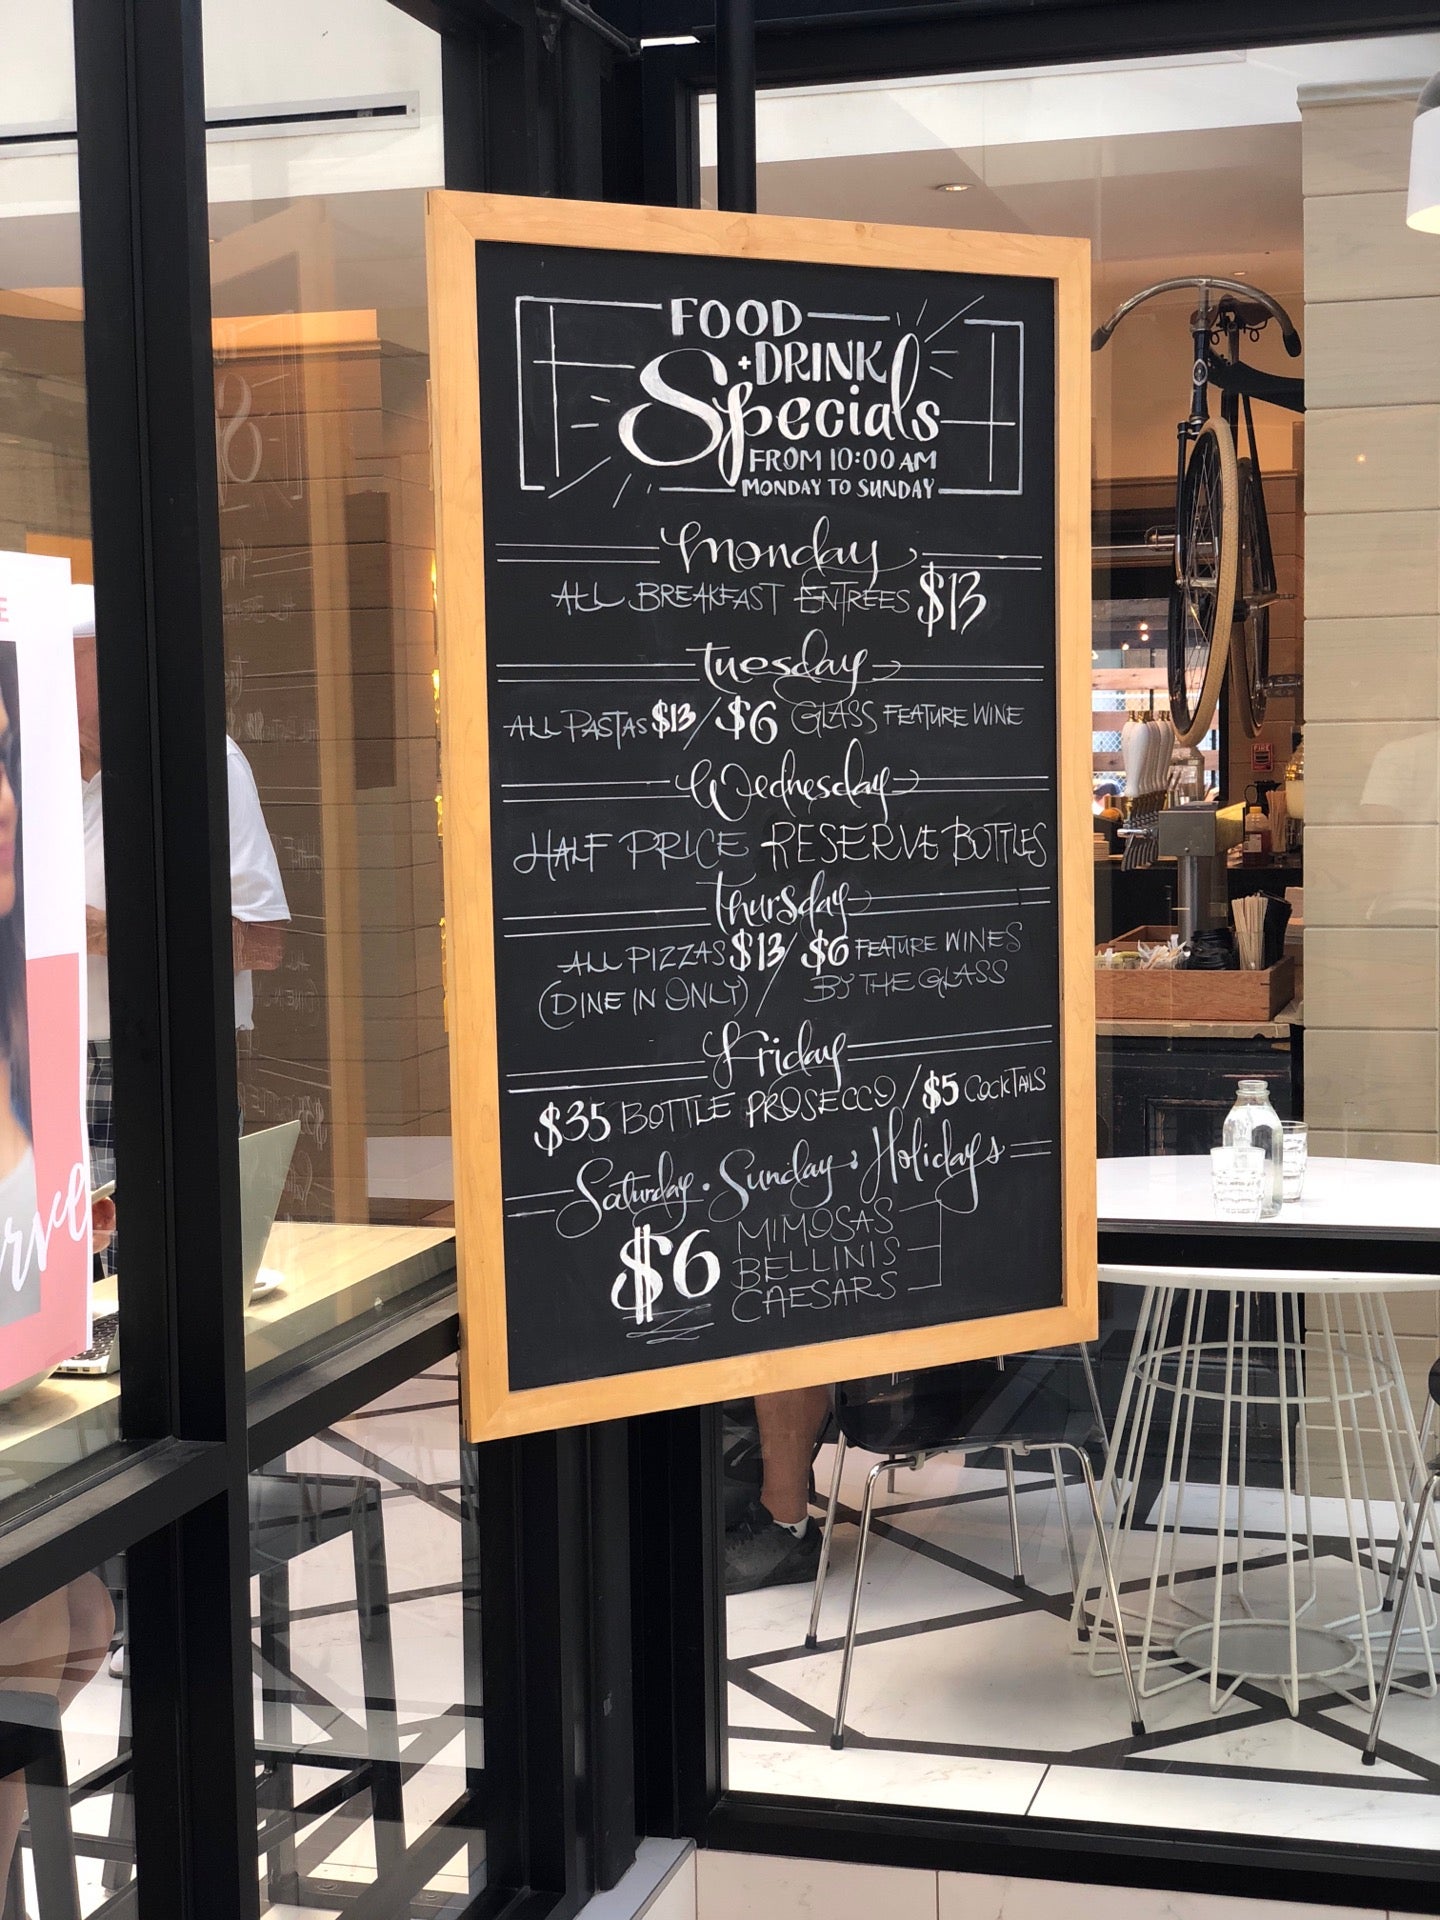 FOOD
+DRINK
Specials
FROM 10:00 AM
MONDAY TO SUNDAY
Monday
ALL BREAKFAST ENTREES $13
Tuesday
ALL PASTAS $13 / $6 GLASS FEATURE WINE
Wednesday
HALF PRICE RESERVE BOTTLES
Thursday
ALL PIZZAS $13 / $6 FEATURE WINES
(DINE IN ONLY) / BY THE GLASS
Friday
$35 BOTTLE PROSECCO / $5 COCKTAILS
Saturday • Sunday & Holidays
$6 MIMOSAS
BELLINIS
CAESARS
FIRE